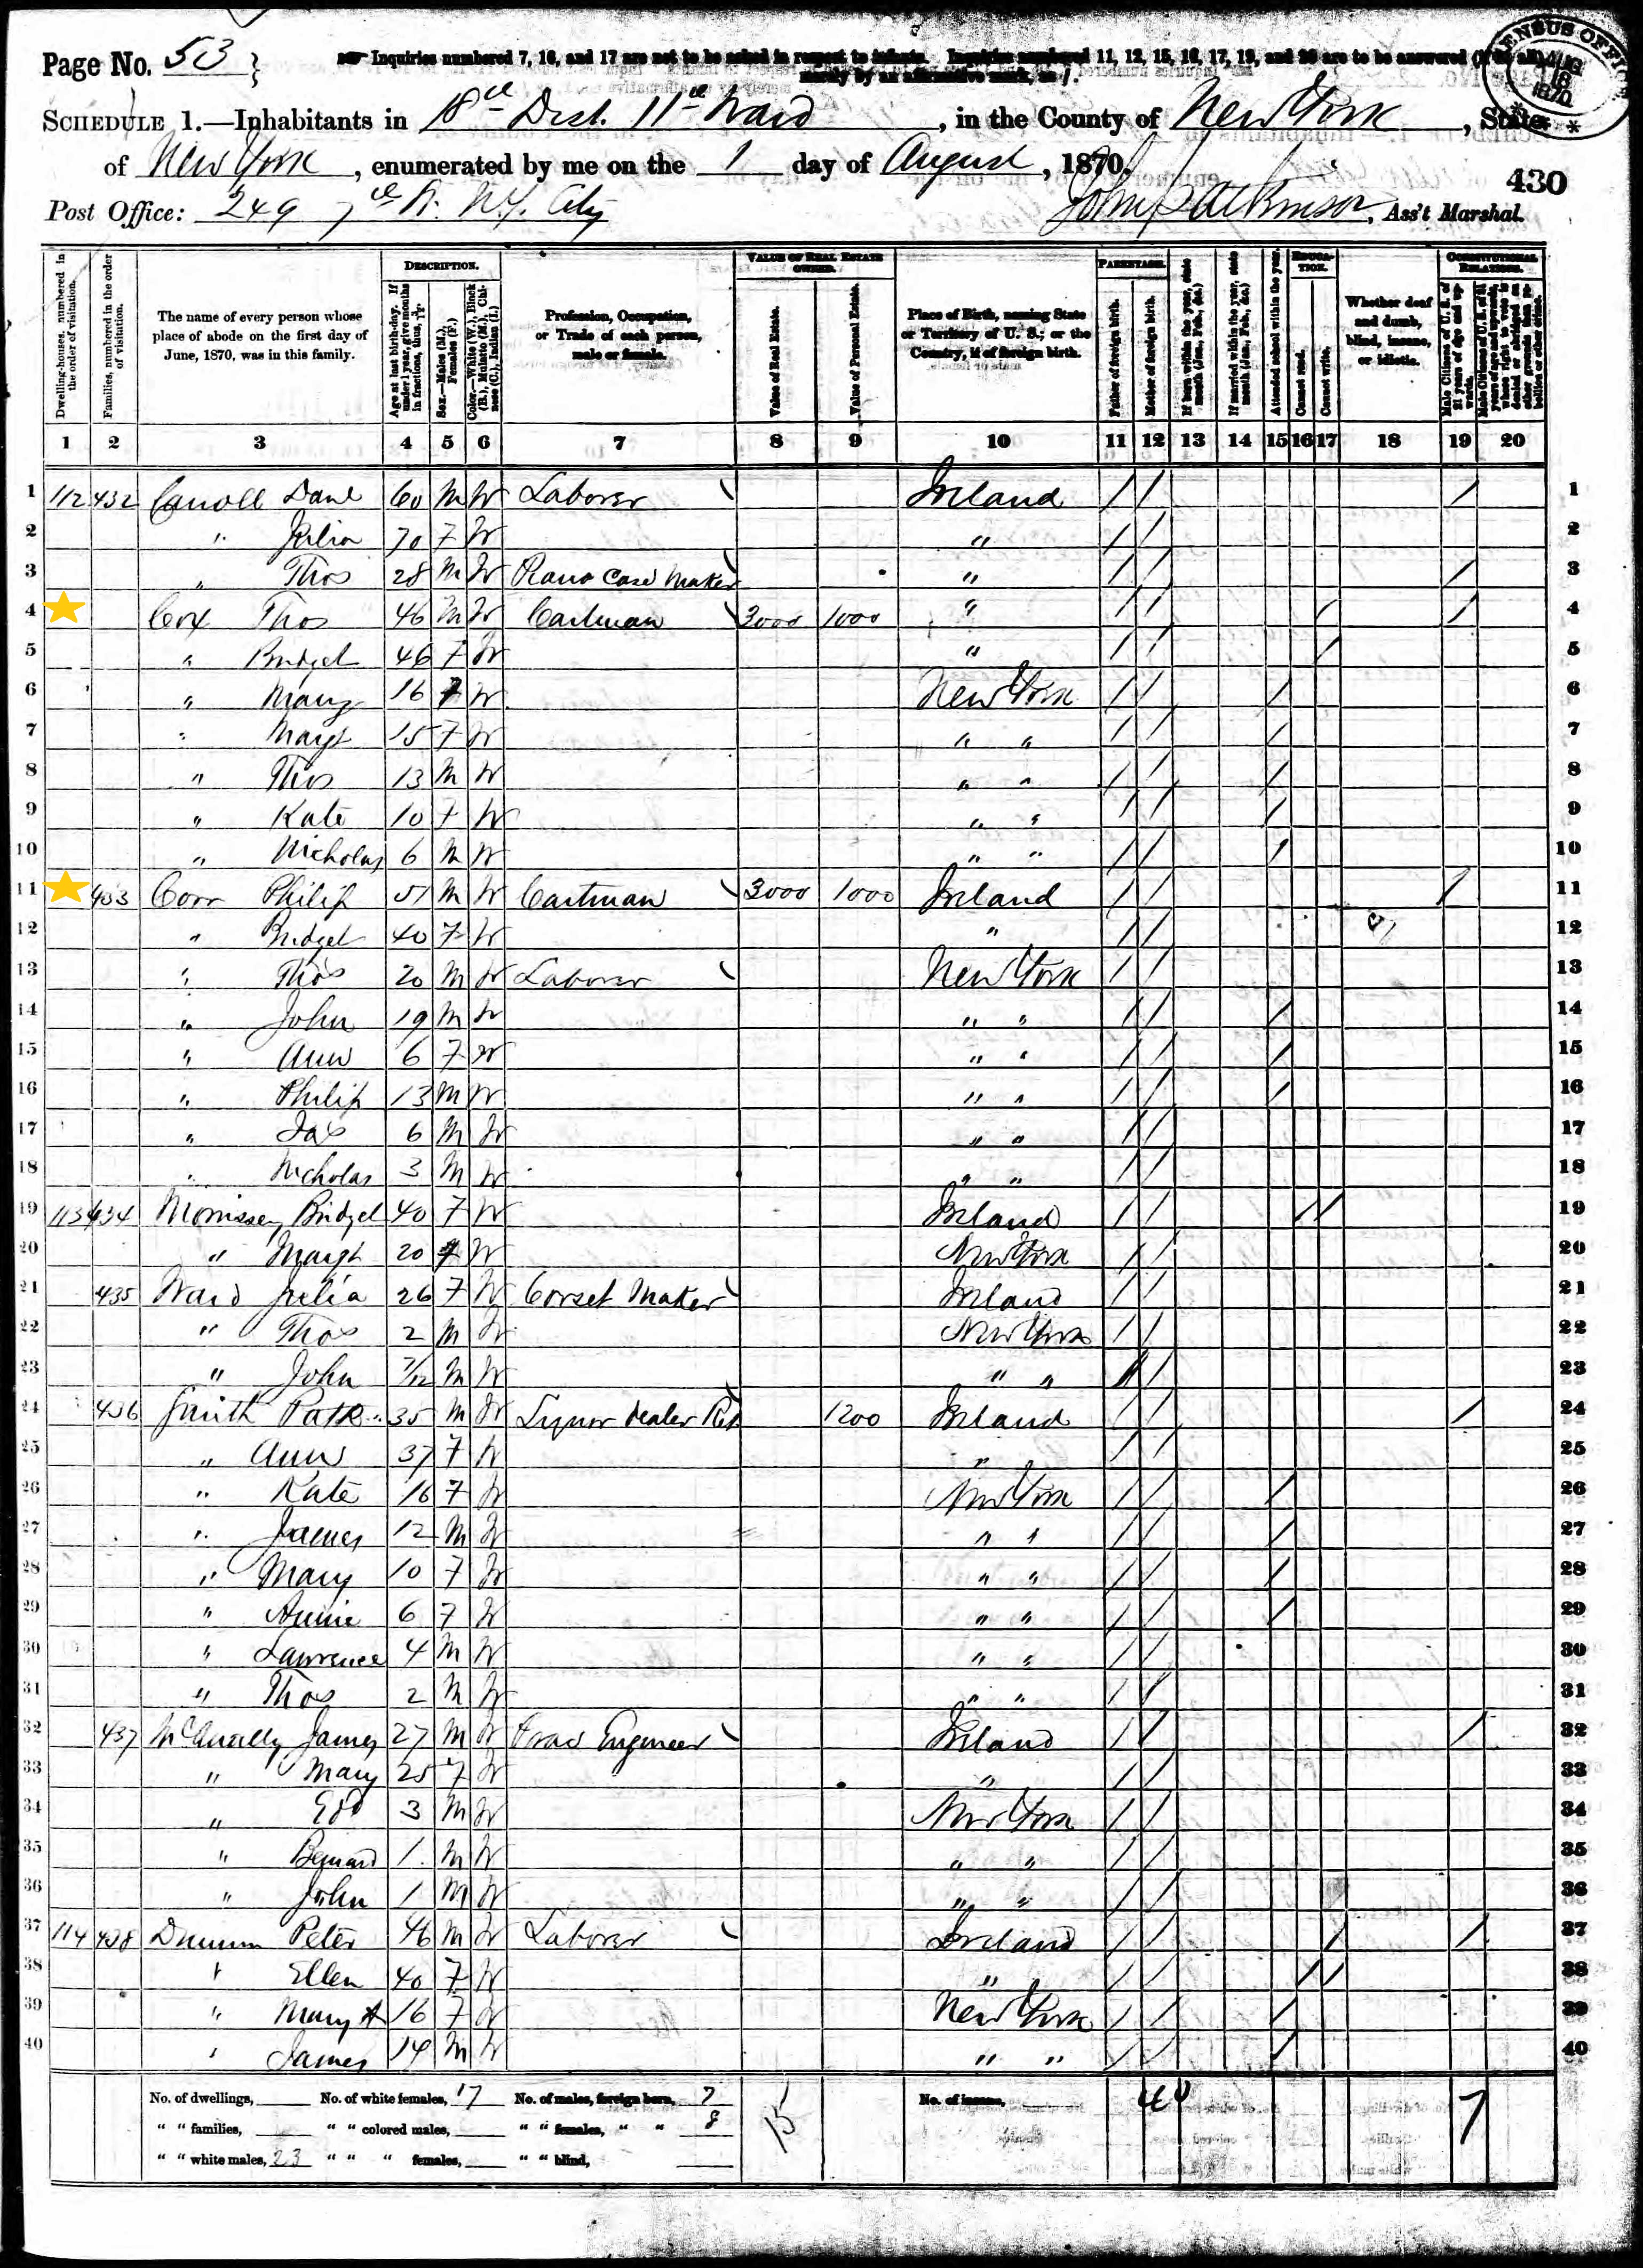 Page No. 53 }
Inquiries numbered 7, 16, and 17 are not to be asked in respect to infants. Inquiries numbered 11, 12, 15, 16, 17, 19, and 20 are to be answered (if at all)
merely by an affirmative mark, as /.
CENSUS OFFICE AUG 18 1870
SCHEDULE 1.—Inhabitants in 18th Dist. 11th Ward, in the County of New York, State
of New York, enumerated by me on the 1 day of August, 1870.
430
Post Office: 249 7th St. N.Y. City
John Atkinson, Ass't Marshal.
Dwelling-houses, numbered in the order of visitation.
Families, numbered in the order of visitation.
The name of every person whose place of abode on the first day of June, 1870, was in this family.
DESCRIPTION.
Age at last birthday. If under 1 year, give months in fractions, thus, 3/12.
Sex.—Males (M.), Females (F.)
Color.—White (W.), Black (B.), Mulatto (M.), Chinese (C.), Indian (I.)
Profession, Occupation, or Trade of each person, male or female.
VALUE OF REAL ESTATE OWNED.
Value of Real Estate.
Value of Personal Estate.
Place of Birth, naming State or Territory of U. S.; or the Country, if of foreign birth.
PARENTAGE.
Father of foreign birth.
Mother of foreign birth.
If born within the year, state month (Jan., Feb., &c.)
If married within the year, state month (Jan., Feb., &c.)
EDUCATION.
Attended school within the year.
Cannot read.
Cannot write.
Whether deaf and dumb, blind, insane, or idiotic.
CONSTITUTIONAL RELATIONS.
Male Citizens of U. S. of 21 years of age and upwards.
Male Citizens of U. S. of 21 years of age and upwards, whose right to vote is denied or abridged on other grounds than rebellion or other crime.
1 2 3 4 5 6 7 8 9 10 11 12 13 14 15 16 17 18 19 20
1 112 432 Carroll Danl 60 M W Laborer Ireland / / / 1
2 " Julia 70 F W " / / 2
3 " Thos 28 M W Piano Case Maker " / / / 3
4 Cox Thos 46 M W Cartman 3000 1000 " / / / / 4
5 " Bridget 46 F W " / / / 5
6 " Mary 16 F W New York / / / 6
7 " Margt 15 F W " " / / / 7
8 " Thos 13 M W " " / / / 8
9 " Kate 10 F W " " / / / 9
10 " Nicholas 6 M W " " / / / 10
11 433 Corr Philip 51 M W Cartman 3000 1000 Ireland / / / 11
12 " Bridget 40 F W " / / 12
13 " Thos 20 M W Laborer New York / / 13
14 " John 19 M W " " / / / 14
15 " Ann 6 F W " " / / / 15
16 " Philip 13 M W " " / / / 16
17 " Jas 6 M W " " / / 17
18 " Nicholas 3 M W " " / / 18
19 113 434 Morrissey Bridget 40 F W Ireland / / / / 19
20 " Margt 20 F W New York / / 20
21 435 Ward Julia 26 F W Corset Maker Ireland / / 21
22 " Thos 2 M W New York / / 22
23 " John 7/12 M W " " / / 23
24 436 Smith Patk 35 M W Liquor Dealer Ret 1200 Ireland / / / 24
25 " Ann 37 F W " / / 25
26 " Kate 16 F W New York / / / 26
27 " James 12 M W " " / / / 27
28 " Mary 10 F W " " / / / 28
29 " Annie 6 F W " " / / / 29
30 " Lawrence 4 M W " " / / 30
31 " Thos 2 M W " " / / 31
32 437 James 27 M W Engineer Ireland / / / 32
33 " Mary 25 F W " / / 33
34 " Edd 3 M W New York / / 34
35 " Bernard 1 M W " " / / 35
36 " John 1 M W " " / / 36
37 114 438 Peter 46 M W Laborer Ireland / / / / 37
38 " Ellen 40 F W " / / / / 38
39 " Mary A 16 F W New York / / / 39
40 " James 14 M W " " / / / 40
No. of dwellings, No. of white females, 17 No. of males, foreign born, 7 15 No. of insane, 40 7
" " families, " " colored males, " " females, " " 8
" " white males, 23 " " " females, " " blind,